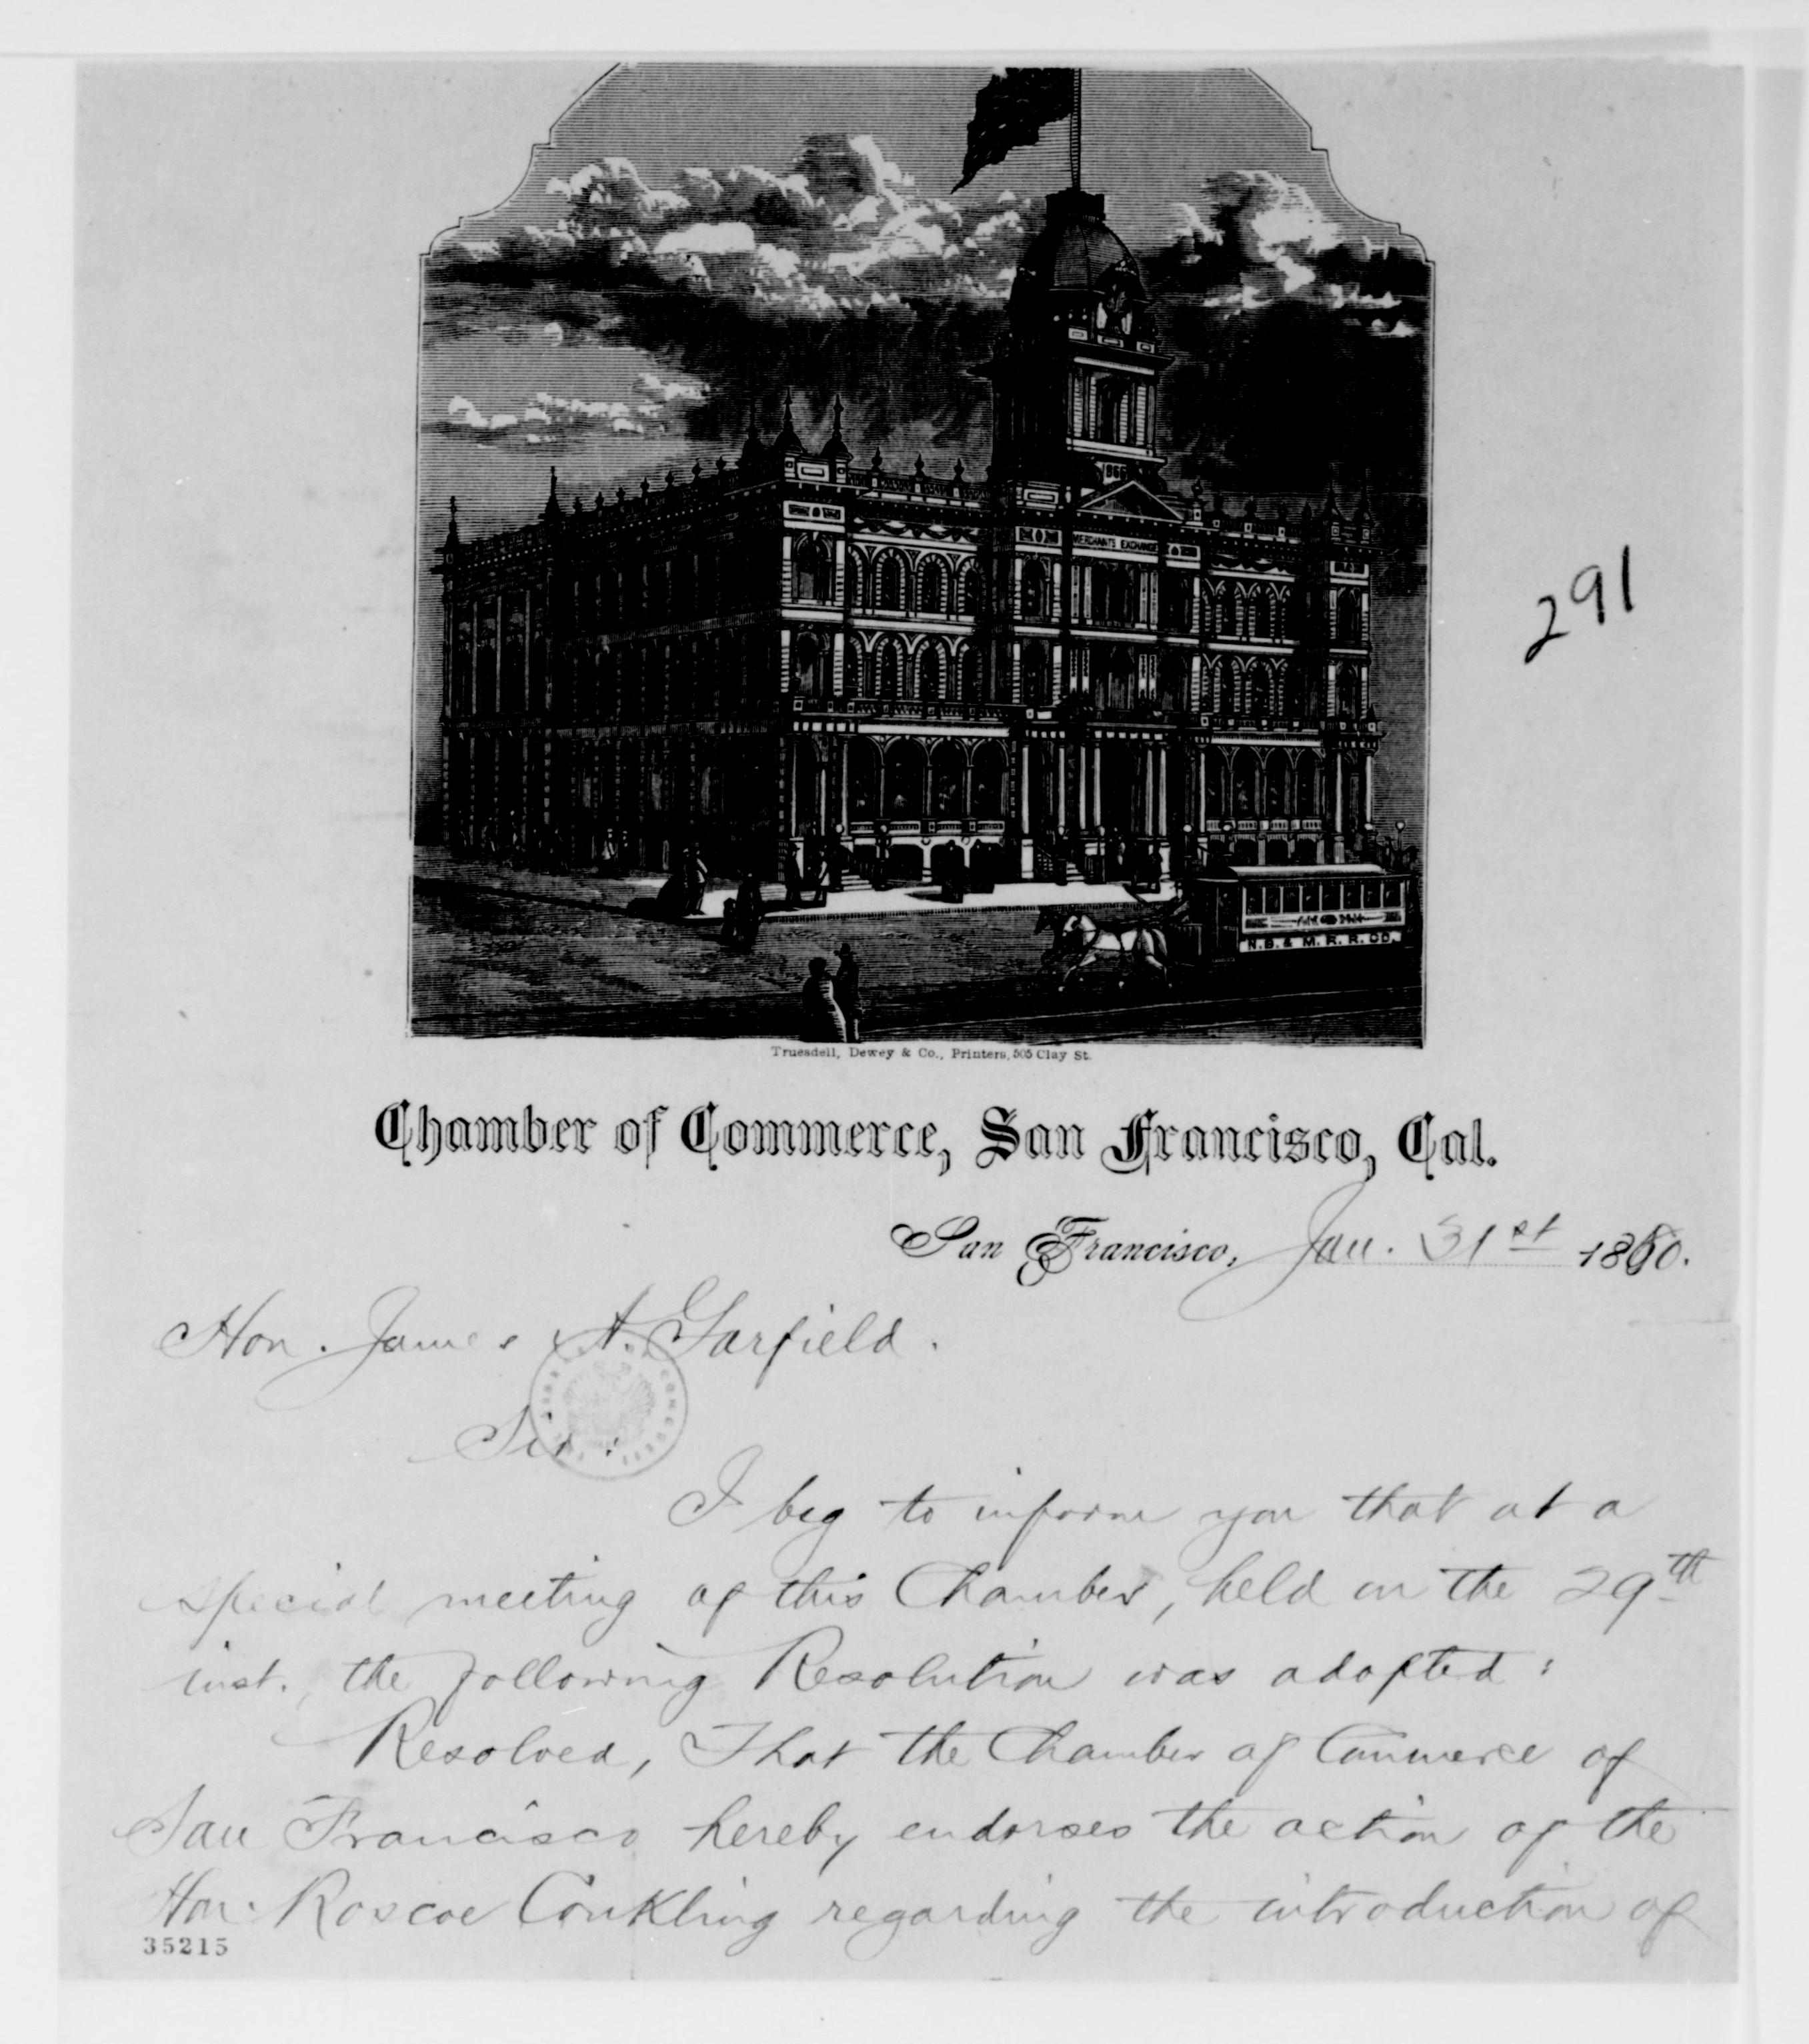 1866
MERCHANTS EXCHANGE
291
N.B. & M. R. R. CO.
Truesdell, Dewey & Co., Printers, 505 Clay St.
Chamber of Commerce, San Francisco, Cal.
San Francisco, Jan. 31st 1880.
Hon. James A. Garfield.
Sir:
I beg to inform you that at a
special meeting of this Chamber, held on the 29th
inst., the following Resolution was adopted:
Resolved, That the Chamber of Commerce of
San Francisco hereby endorses the action of the
Hon. Roscoe Conkling regarding the introduction of
35215